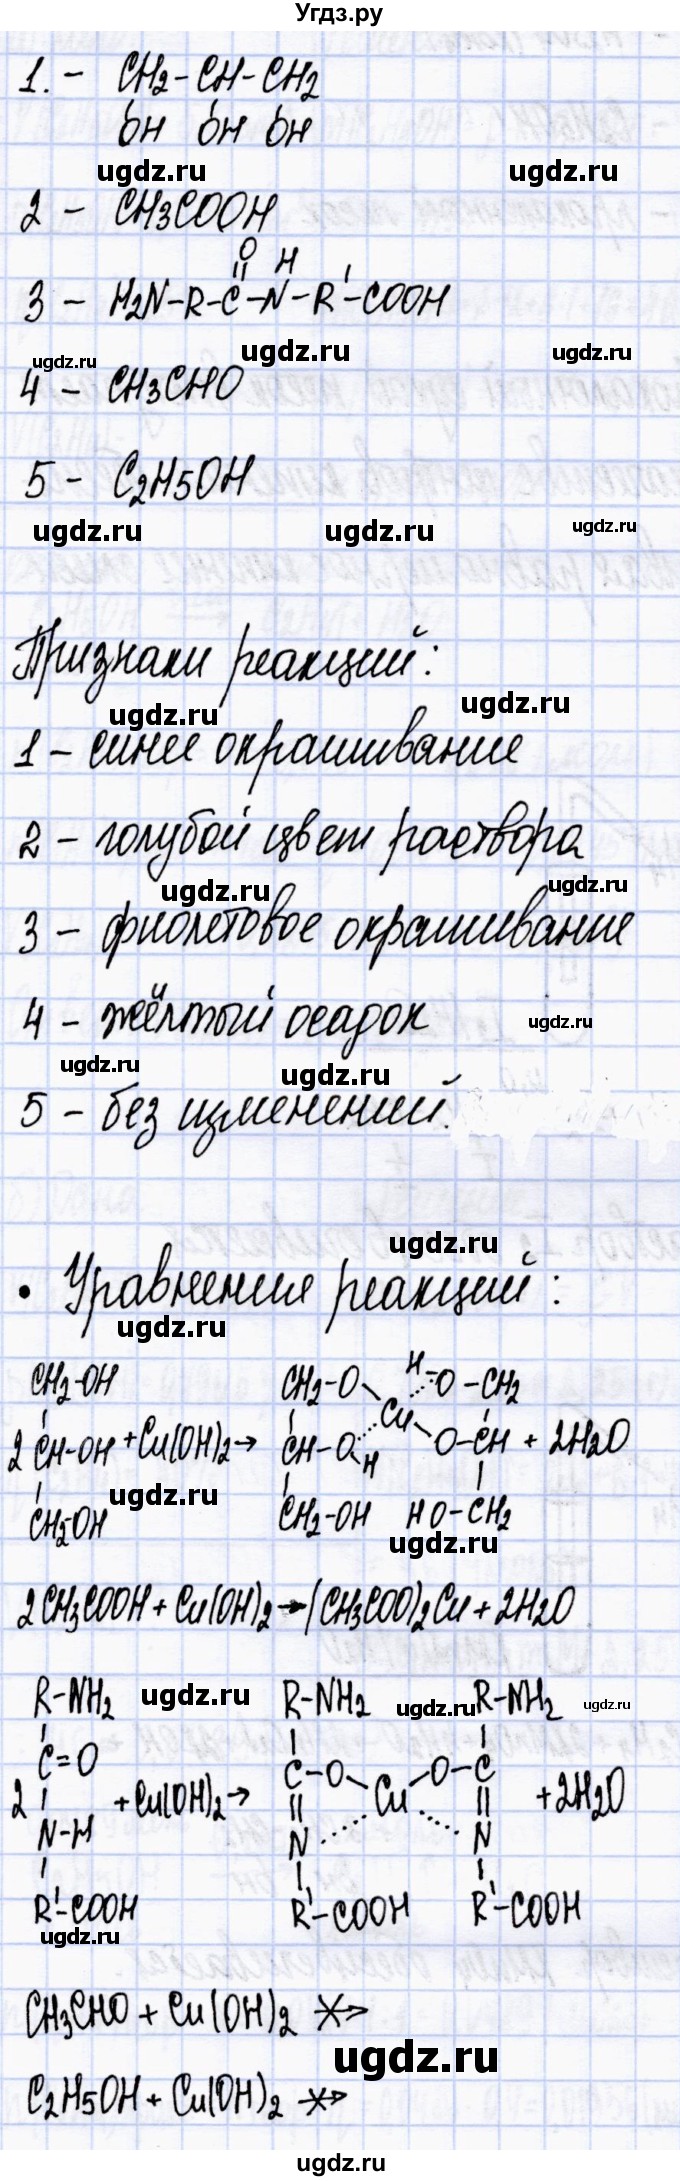 Угдз.ру
1. - CH2-CH-CH2
OH OH OH
ugdz.ru ugdz.ru
2 - CH3COOH
O H
3 - H2N-R-C-N-R'-COOH
ugdz.ru ugdz.ru ugdz.ru
4 - CH3CHO
5 - C2H5OH
ugdz.ru ugdz.ru ugdz.ru
Признаки реакций:
ugdz.ru ugdz.ru
1 - синее окрашивание
2 - голубой цвет раствора
ugdz.ru ugdz.ru
3 - фиолетовое окрашивание
4 - жёлтый осадок
ugdz.ru
ugdz.ru ugdz.ru
5 - без изменений.
ugdz.ru
• Уравнения реакций:
ugdz.ru
CH2-OH CH2-O H-O-CH2
2 CH-OH + Cu(OH)2 → CH-O Cu O-CH + 2H2O
H
ugdz.ru
CH2-OH CH2-OH HO-CH2
ugdz.ru
2CH3COOH + Cu(OH)2 → (CH3COO)2Cu + 2H2O
R-NH2 ugdz.ru R-NH2 ugdz.ru R-NH2 ugdz.ru
C=O C-O Cu O-C
2 + Cu(OH)2 → + 2H2O
N-H N N
R'-COOH R'-COOH R'-COOH
ugdz.ru
CH3CHO + Cu(OH)2 ↛
ugdz.ru
C2H5OH + Cu(OH)2 ↛
ugdz.ru